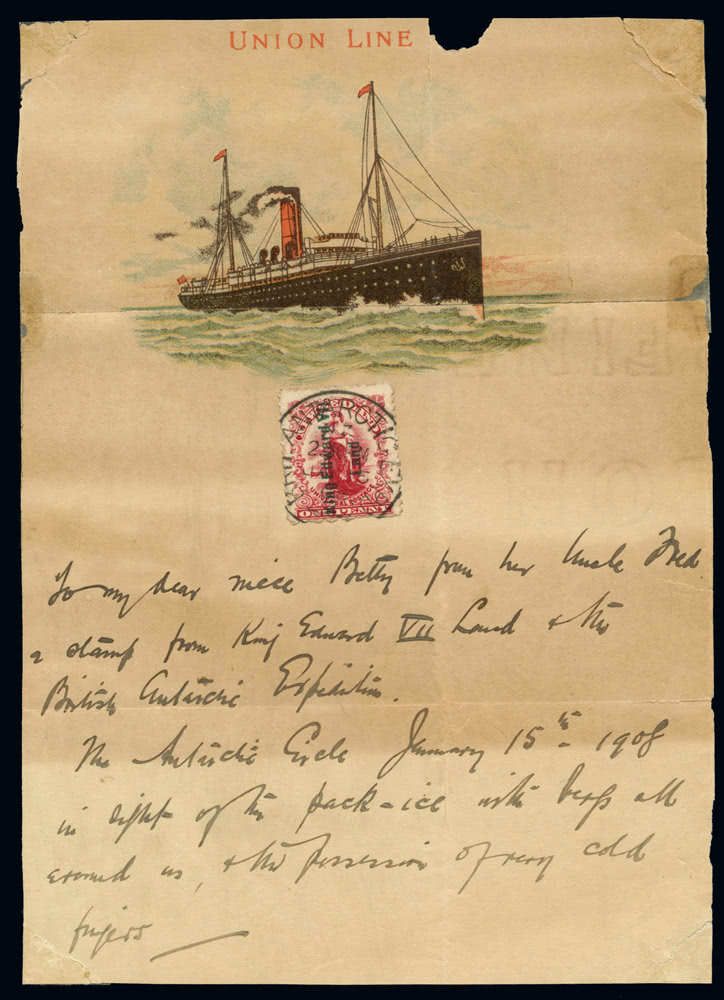 UNION LINE
King Edward VII
Land
UNIVERSAL POSTAGE
ONE PENNY
To my dear niece Betty from her Uncle Fred
a stamp from King Edward VII Land & the
British Antarctic Expedition.
The Antarctic Circle January 15th 1908
in sight of the pack-ice with bergs all
around us, & the possession of very cold
fingers